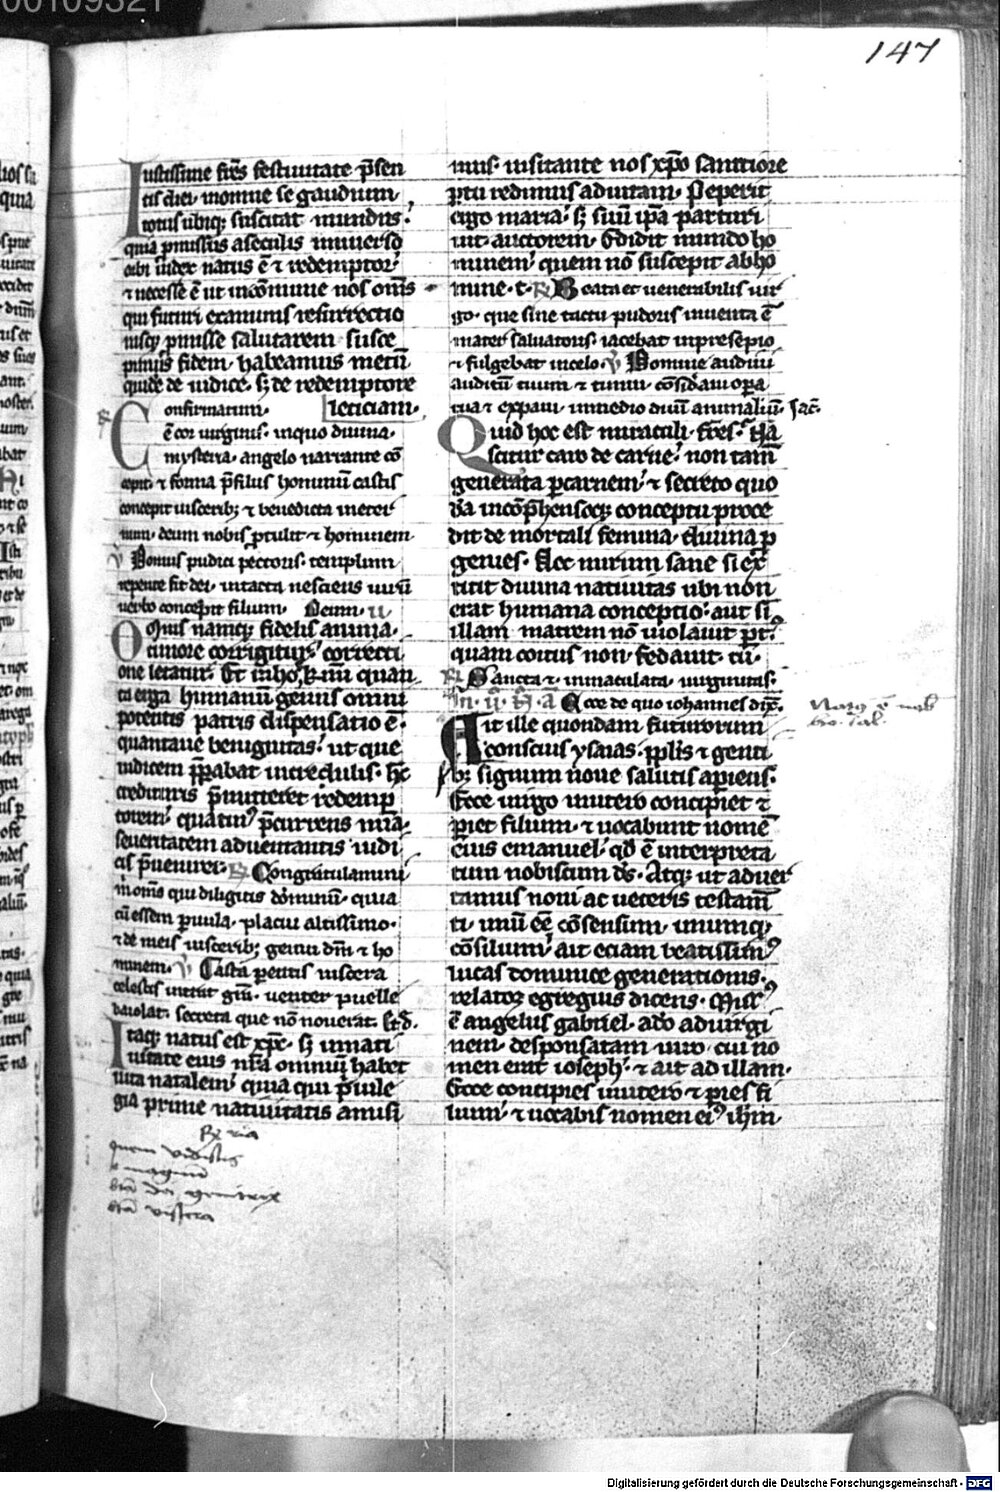 147
Iustissime frēs festiuitate p̄sen
tis diei· in omne se gaudium·
totus ubiqꝫ suscitat mundus·
quia ꝓmissus a seculis uniuerso
orbi iudex natus ē ⁊ redemptor·
⁊ necesse ē ut in cōmune nos om̄s
qui futuri examinis resurrectio
nisqꝫ ꝓmisse salutarem susce
pimus fidem· habeamus metū
quidē de iudice· sꝫ de redemptore
leticiam·
℟ Confirmatum·
ē cor uirginis· in quo diuina·
mysteria· angelo narrante cō
cepit· ⁊ forma p̄filuis hominū castis
concepit uisceribꝫ ⁊ benedicta in eter
num· deum nobis ꝓtulit ⁊ hominem·
℣ Domus pudici pectoris· templum
repente fit dei· intacta nesciens uirū
uerbo concepit filium· Deum·
O quis namqꝫ fidelis anima·
timore corrigitur· correcti
one letatur· Et in hoc k̄mi quan
ta erga humanū genus omni
potentis patris dispensatio ē·
quantaue benignitas· ut que
iudicem p̄parabat incredulis· hc̄
credituris p̄mitteret redemp
torem· quatin⁹ p̄currens mīa·
seueritatem aduentantis iudi
cis p̄ueniret· ℟ Congratulamini
m̄ om̄s qui diligitis dominū· quia
cū essem paruula· placui altissimo·
⁊ de meis uisceribꝫ genui dm̄ ⁊ ho
minem· ℣ Casta parentis uiscera
celestis intrat gr̄a· uenter puelle
baiolat· secreta que nō nouerat·
Itaqꝫ natus est xp̄c· sꝫ in nati
uitate eius nr̄a omniū habet
uita natalem· quia qui p̄uile
gia prime natiuitatis amisi
℟
quem vidistis
o magnum
btā dei genitrix
btā viscera
mus· uisitante nos xp̄o sanctiore
ꝑtu redimus ad uitam· Peperit
ergo maria· sꝫ suū ip̄a parturi
uit· auctorem· Edidit mundo ho
minem· quem nō suscepit ab ho
mine· t· ℟ Beata et uenerabilis uir
go· que sine tactu pudoris inuenta ē
mater saluatoris· iacebat in presepio
⁊ fulgebat in celo· ℣ Domine audiui
auditū tuum ⁊ timui· cōsid̄aui oꝑa
tua ⁊ expaui· in medio duū animaliū· Iac̄·
Quid hoc est miraculi· frēs·
scitur caro de carne· non tam̄
generata ꝑ carnem· ⁊ secreto quo
dā incōp̄hensoqꝫ conceptu proce
dit de mortali femina· diuina ꝓ
genies· Nec mirum sane si ex
titit diuina natiuitas ubi non
erat humana conceptio· aut si
illam matrem nō uiolauit part⁹
quam coitus non fedauit· tū·
℟ Sancta ⁊ immaculata uirginitas·
Ecce de quo iohannes dix̄·
Ait ille quondam futurorum
conscius ysaias· pp̄lis ⁊ genti
bꝫ signum noue salutis aperiens·
Ecce uirgo in utero concipiet ⁊
pariet filium· ⁊ uocabunt nomē
eius emanuel· qd̄ ē interpreta
tum nobiscum ds̄· Atqꝫ ut aduer
tamus noui ac ueteris testam̄
ti· unū eē cōsensum· unumqꝫ
cōsilium· ait etiam beatissim⁹
lucas dominice generationis·
relator egregius dicens· Miss⁹
ē angelus gabriel· a d̄o ad uirgi
nem· desponsatam uiro· cui no
men erat ioseph· ⁊ ait ad illam·
Ecce concipies in utero ⁊ paries fi
lium· ⁊ uocabis nomen ei⁹ ihm̄·
Digitalisierung gefördert durch die Deutsche Forschungsgemeinschaft · DFG